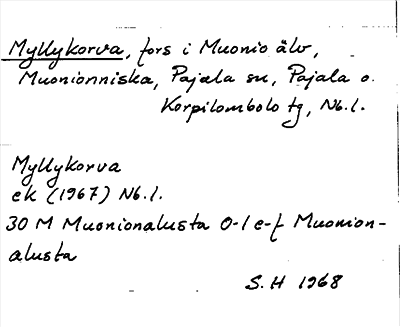 Myllykorva, fors i Muonio älv,
Muonionniska, Pajala sn, Pajala o.
Korpilombolo tg, Nb.l.
Myllykorva
ek (1967) Nb.l.
30 M Muonionalusta 0-1 e-f Muonion-
alusta
S.H 1968